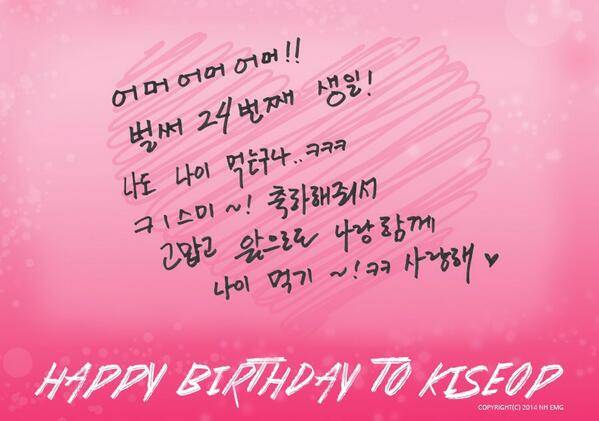 어머 어머 어머!!
벌써 24번째 생일!
나도 나이 먹는구나..ㅋㅋㅋ
ㅋㅣ스미~! 축하해줘서
고맙고 앞으로도 나랑 함께
나이 먹기 ~!ㅋㅋ 사랑해 ♥
HAPPY BIRTHDAY TO KISEOP
COPYRIGHT(C) 2014 NH EMG